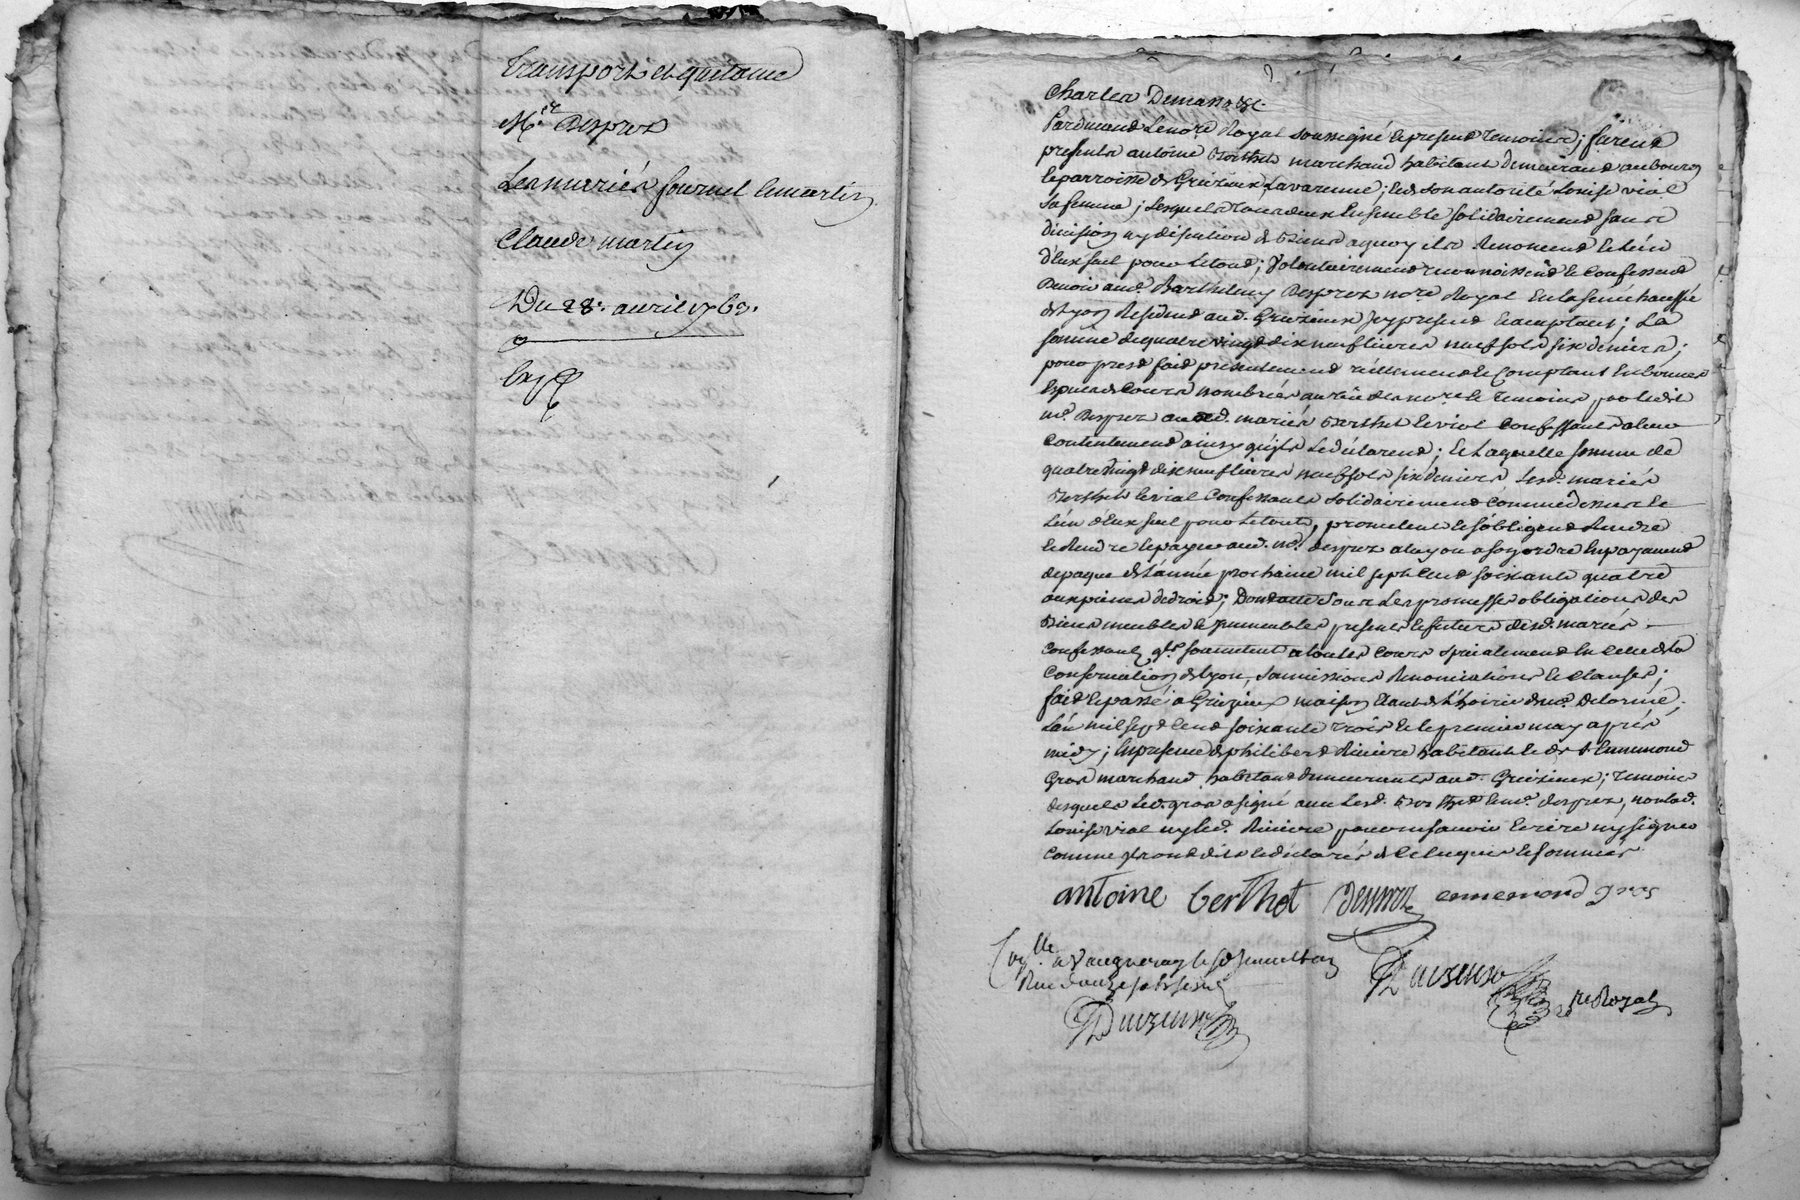 Transport et quitance
Me Desprez
Les mariés fournel et martin
Claude martin
Du 28e. avril 1763.
Exp
Charles Demanozzc.
Pardevant Le no.re Royal soussigné et presents temoins; furent
presents antoine Berthet marchand habitant demeurant au bourg
et parroisse de Grezieux Lavarenne; et de son autorité Louise vial
sa femme; Lesquels tous deux Ensemble solidairement sans
division ny discution de biens aquoy ils Renoncent et L'un
d'Eux seul pour Le tout; volontairement reconnoissent et Confessent
Devoir aud. Barthelemy Desprez no.re Royal En la senechaussée
de Lyon Resident aud. Grezieux Icy present Et acceptant; La
somme de quatre vingt dix neuf livres neuf sols six deniers;
pour prest fait presentement réellement et Comptant En bonnes
Especes de Cours nombrées au vû de no.re et temoins par ledit
me. Desprez auxd. mariés Berthet et vial Confessants a leur
Contentement ainsy qu'ils Le déclarent; Et Laquelle somme de
quatre vingt dix neuf livres neuf sols six deniers Lesd. mariés
Berthet et vial Confessants solidairement Comme dessus et
L'un d'Eux seul pour Le tout, promettent et s'obligent Rendre
et payer aud. me. desprez a Lyon a son ordre En payement
de paques de L'année prochaine mil sept Cent soixante quatre
aux peines de droit; sous Les promesses obligations des
Biens meubles et Immeubles presents et futurs desd. mariés
Confessants qls. soumettent a toutes Cours specialement En Celle de la
Conservation de Lyon, soumissions Renonciations et Clauses;
fait et passé a Grezieux maison de L'hoirie de me. Delorme,
L'an mil sept Cent soixante trois et le premier may après
midy; En presence de philibert Riviere habitant et de Sr. Ennemond
Gros marchand habitant demeurants aud. Grezieux; temoins
desquels Led. gros a signé avec Led. Berthet et me. desprez, non lad.
Louise vial ny led. Riviere pour ne savoir Ecrire ny signer
Comme Ils ont dit et déclaré de Ce Enquis et sommés.
antoine berthet Desprez ennemond gros
Con.lle a Vaugneray le
Reçu douze sols
re Royal